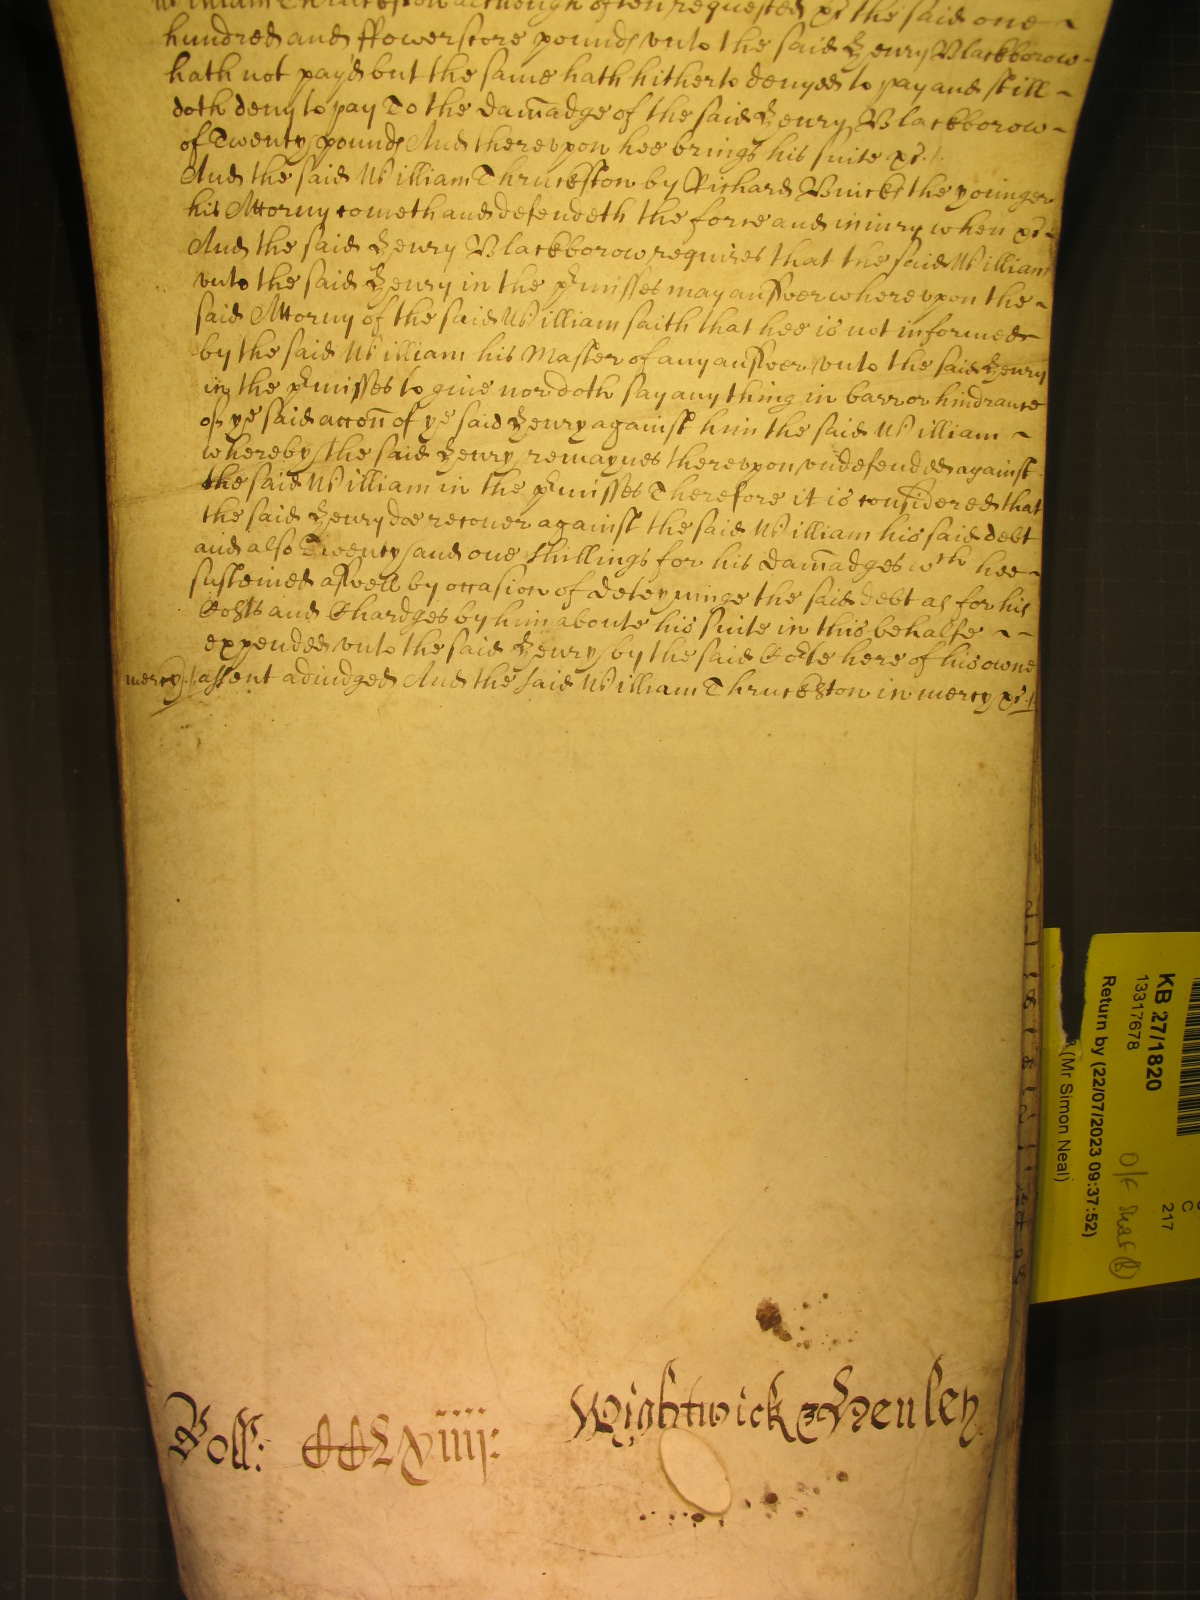 William Thruckston although often requested &c the said one
hundred and ffowerscore pounds vnto the said Henry Blackborow
hath not payd but the same hath hitherto denyed to pay and still
doth deny to pay To the dam̄adge of the said Henry Blackborow
of Twenty pounds And therevpon hee brings his suite &c.
And the said William Thruckston by Richard Buicke the younger
his Attorny cometh and defendeth the force and iniury when &c
And the said Henry Blackborow requires that the said William
vnto the said Henry in the p̱misses may answer wherevpon the
said Attorny of the said William saith that hee is not informed
by the said William his Master of any answer vnto the said Henry
in the p̱misses to giue nor doth say any thing in barr or hindrance
of ye said accon̄ of ye said Henry against him the said William
whereby the said Henry remaynes therevpon vndefended against
the said William in the p̱misses Therefore it is considered that
the said Henry doe recouer against the said William his said debt
and also Twenty and one shillings for his dam̄adges wch hee
susteined aswell by occasion of deteyninge the said debt as for his
Costs and Chardges by him aboute his suite in this behalfe
expended vnto the said Henry by the said Corte here of his owne
mercy assent adiudged And the said William Thruckston in mercy &c
Roll: CCLXiiij:
Wightwick & Henley
KB 27/1820
13317678
Return by (22/07/2023 09:37:52)
(Mr Simon Neal)
217
C
O/F